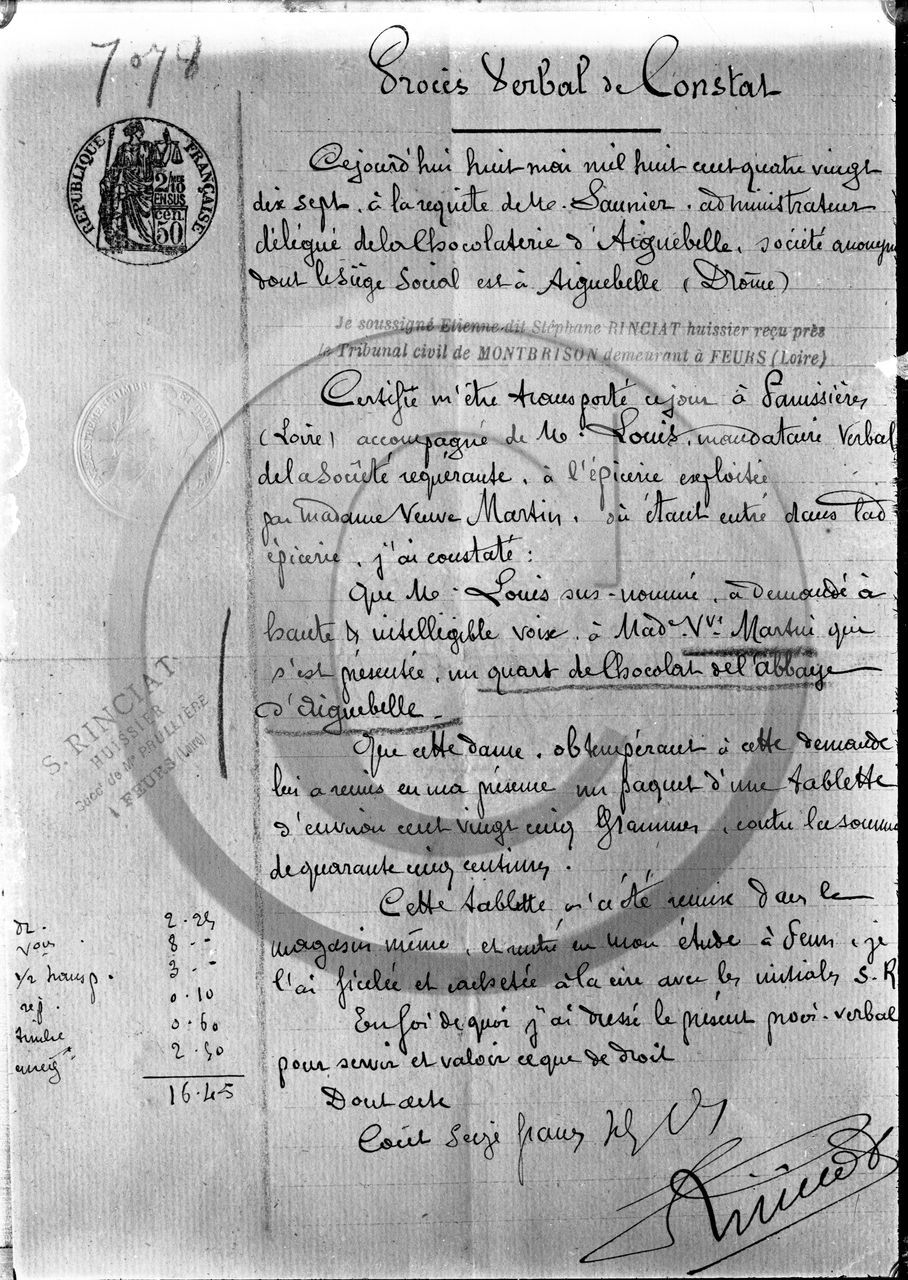 7078
Procès Verbal de Constat
RÉPUBLIQUE FRANÇAISE
2/10
EN SUS
cen.
50
Cejourd'hui huit mai mil huit cent quatre vingt
dix sept, à la requête de M. Saunier, administrateur
délégué de la Chocolaterie d'Aiguebelle, société anonyme
dont le siège Social est à Aiguebelle (Drôme)
Je soussigné Etienne dit Stéphane RINCIAT huissier reçu près
le Tribunal civil de MONTBRISON demeurant à FEURS (Loire)
Certifie m'être transporté ce jour à Panissières
(Loire) accompagné de M. Louis, mandataire Verbal
de la Société requérante, à l'épicerie exploitée
par Madame Veuve Martin, où étant entré dans lad
épicerie, j'ai constaté :
Que M. Louis sus-nommé, a demandé à
haute & intelligible voix, à Made Vve Martin qui
s'est présentée, un quart de Chocolat de l'abbaye
d'Aiguebelle.
Que cette dame, obtempérant à cette demande
lui a remis en ma présence un paquet d'une tablette
d'environ cent vingt cinq Grammes, contre la somme
de quarante cinq centimes.
Cette tablette m'a été remise dans le
magasin même, et rentré en mon étude à Feurs, je
l'ai ficelée et cachetée à la cire avec les initiales S.R
En foi de quoi j'ai dressé le présent procès-verbal
pour servir et valoir ce que de droit
Dont acte
Coût Seize francs
Rinciat
S. RINCIAT
HUISSIER
Succr de Me PRULLIÈRE
A FEURS (Loire)
dr. 2.25
voy. 8 --
1/2 transp. 3 --
rep. 0.10
timbre 0.60
enreg 2.50
16.45